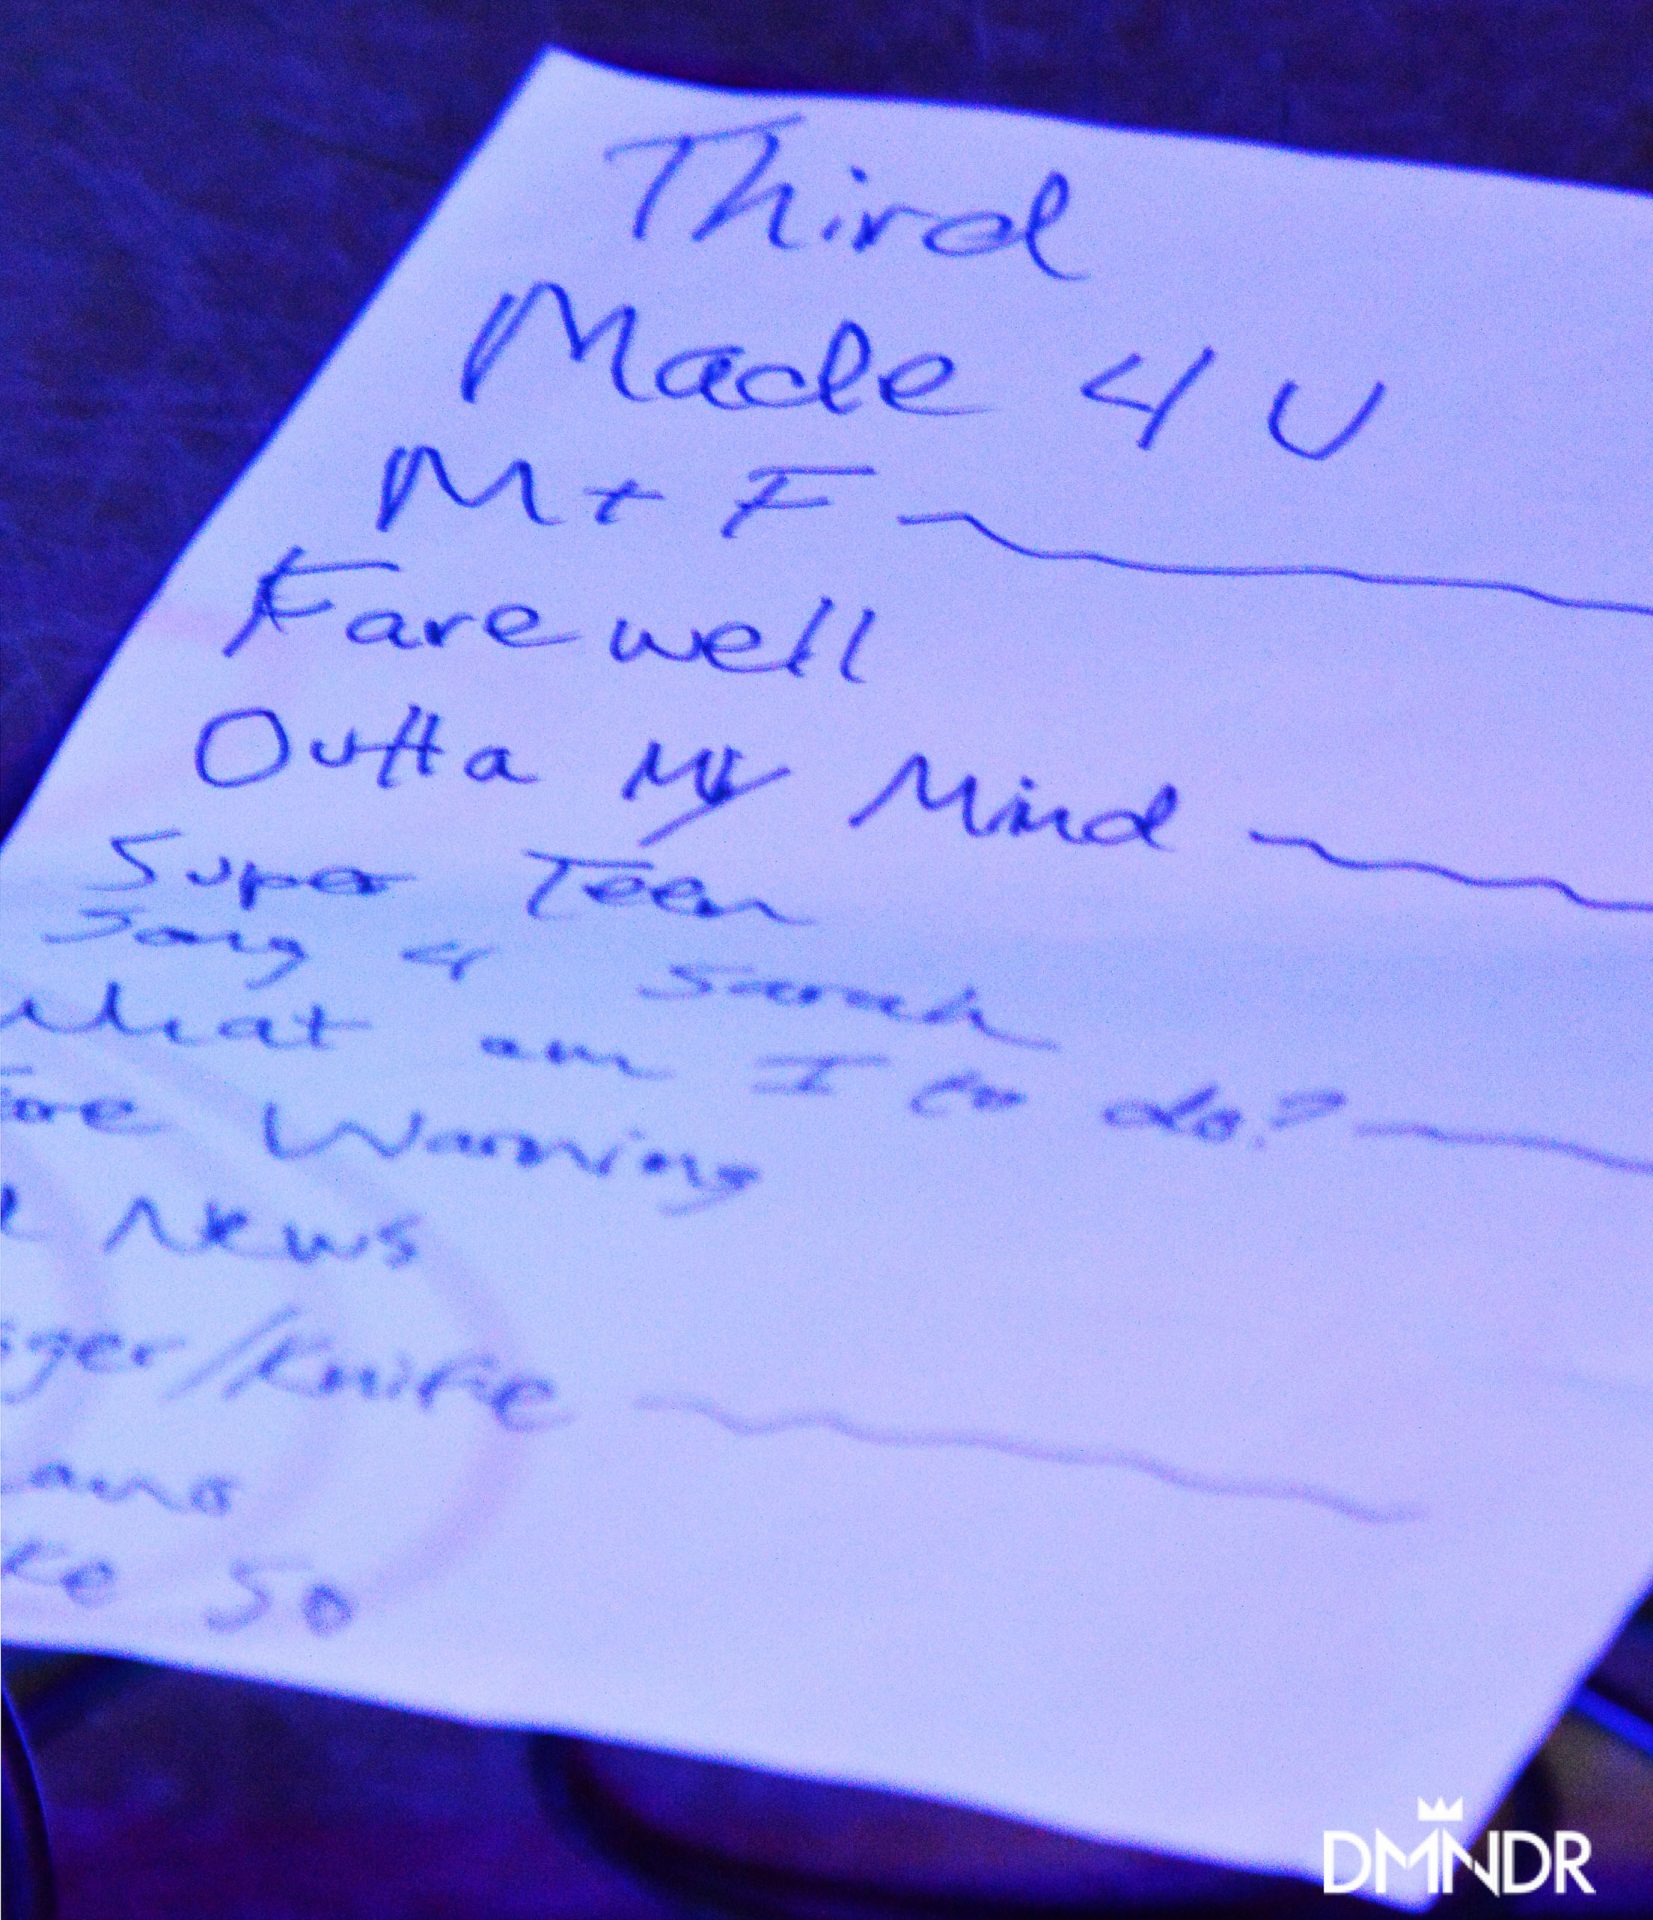 Third
Made 4 U
M + F
Farewell
Outta My Mind
Super Teen
Song 4 Sarah
What am I to do?
Fore Warning
News
/Knife
So
DMNDR